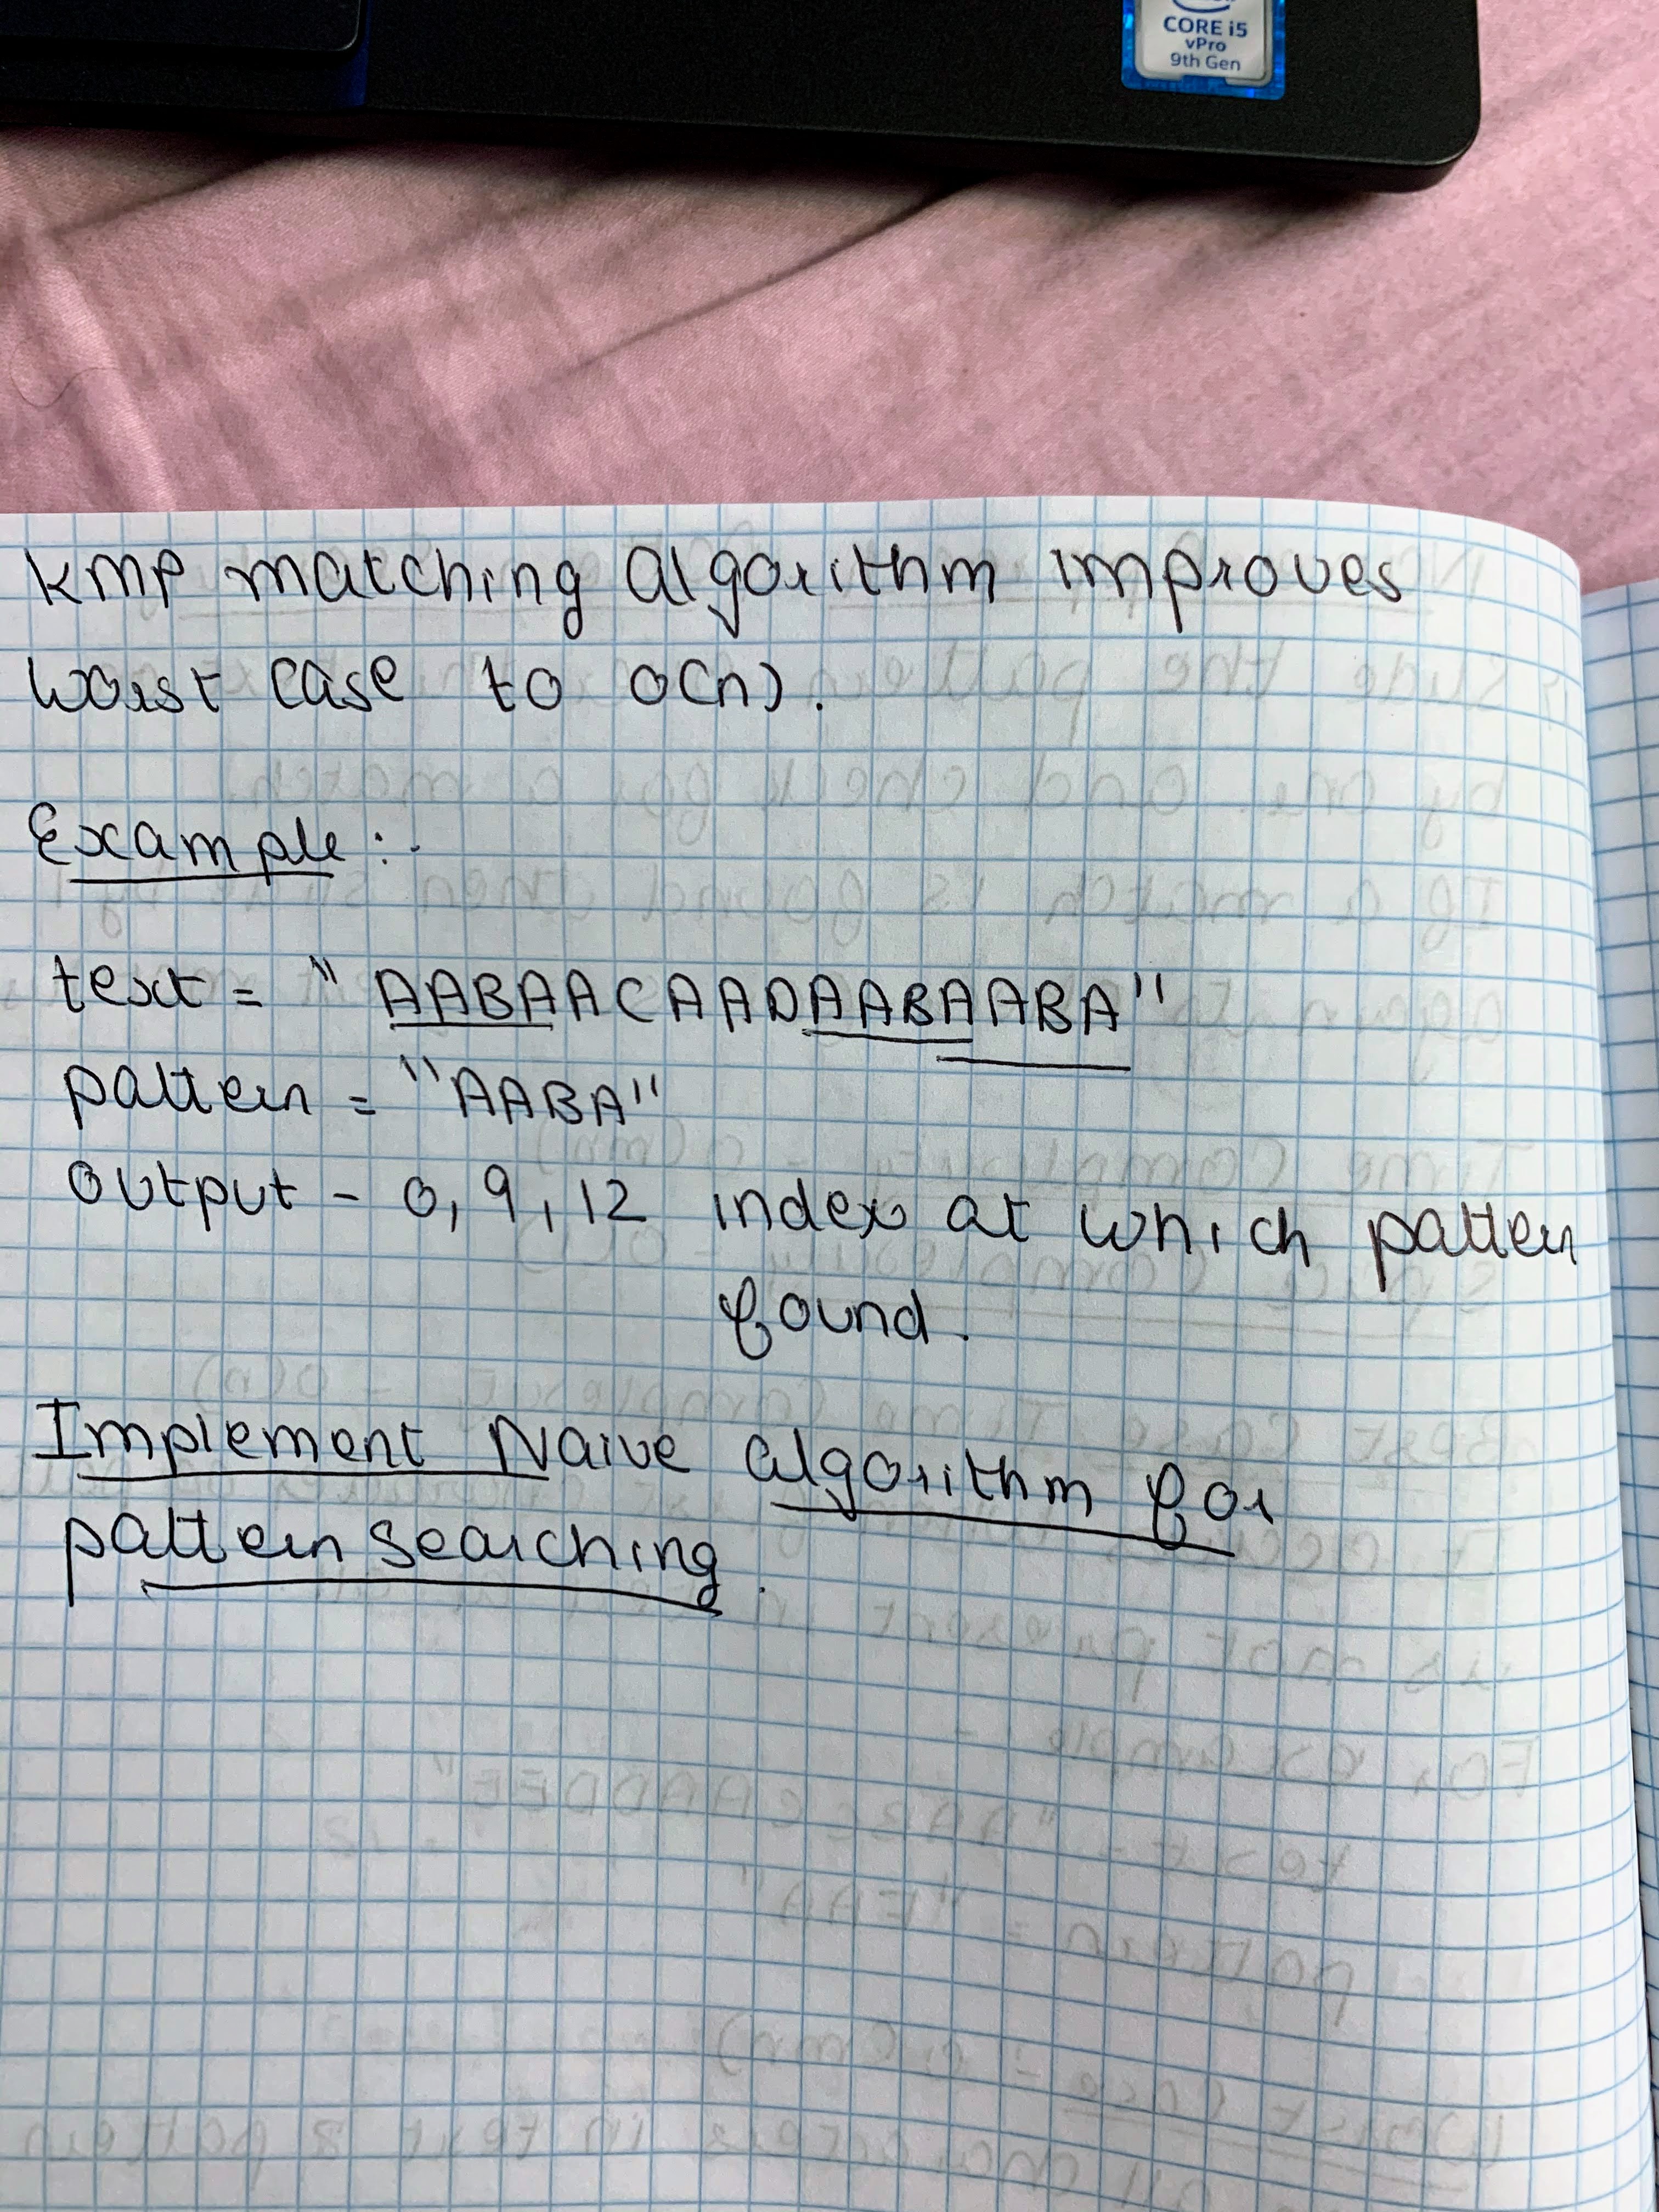 CORE i5
vPro
9th Gen
KMP matching algorithm improves
worst case to O(n).
Example :-
text = "AABAACAADAABAABA"
pattern = "AABA"
output - 0, 9, 12 index at which pattern
found.
Implement Naive algorithm for
pattern searching.